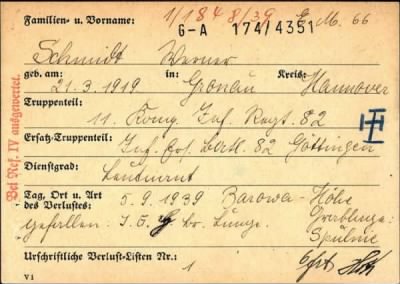 Familien- u. Vorname: 1/184 8/39 M. 66
G-A 174/4351
Schmidt Werner
geb. am: 21.3.1919 in: Gronau Kreis: Hannover
Truppenteil: 11. Komp. Inf. Regt. 82
Ersatz-Truppenteil: Inf. Ers. Batl. 82 Göttingen
Dienstgrad: Leutnant
Tag, Ort u. Art des Verlustes: 5.9.1939 Barowa-Höhe
gefallen I.G. br. Lunge
Urschriftliche Verlust-Listen Nr.: 1
V1
Bei Ref. IV ausgewertet.